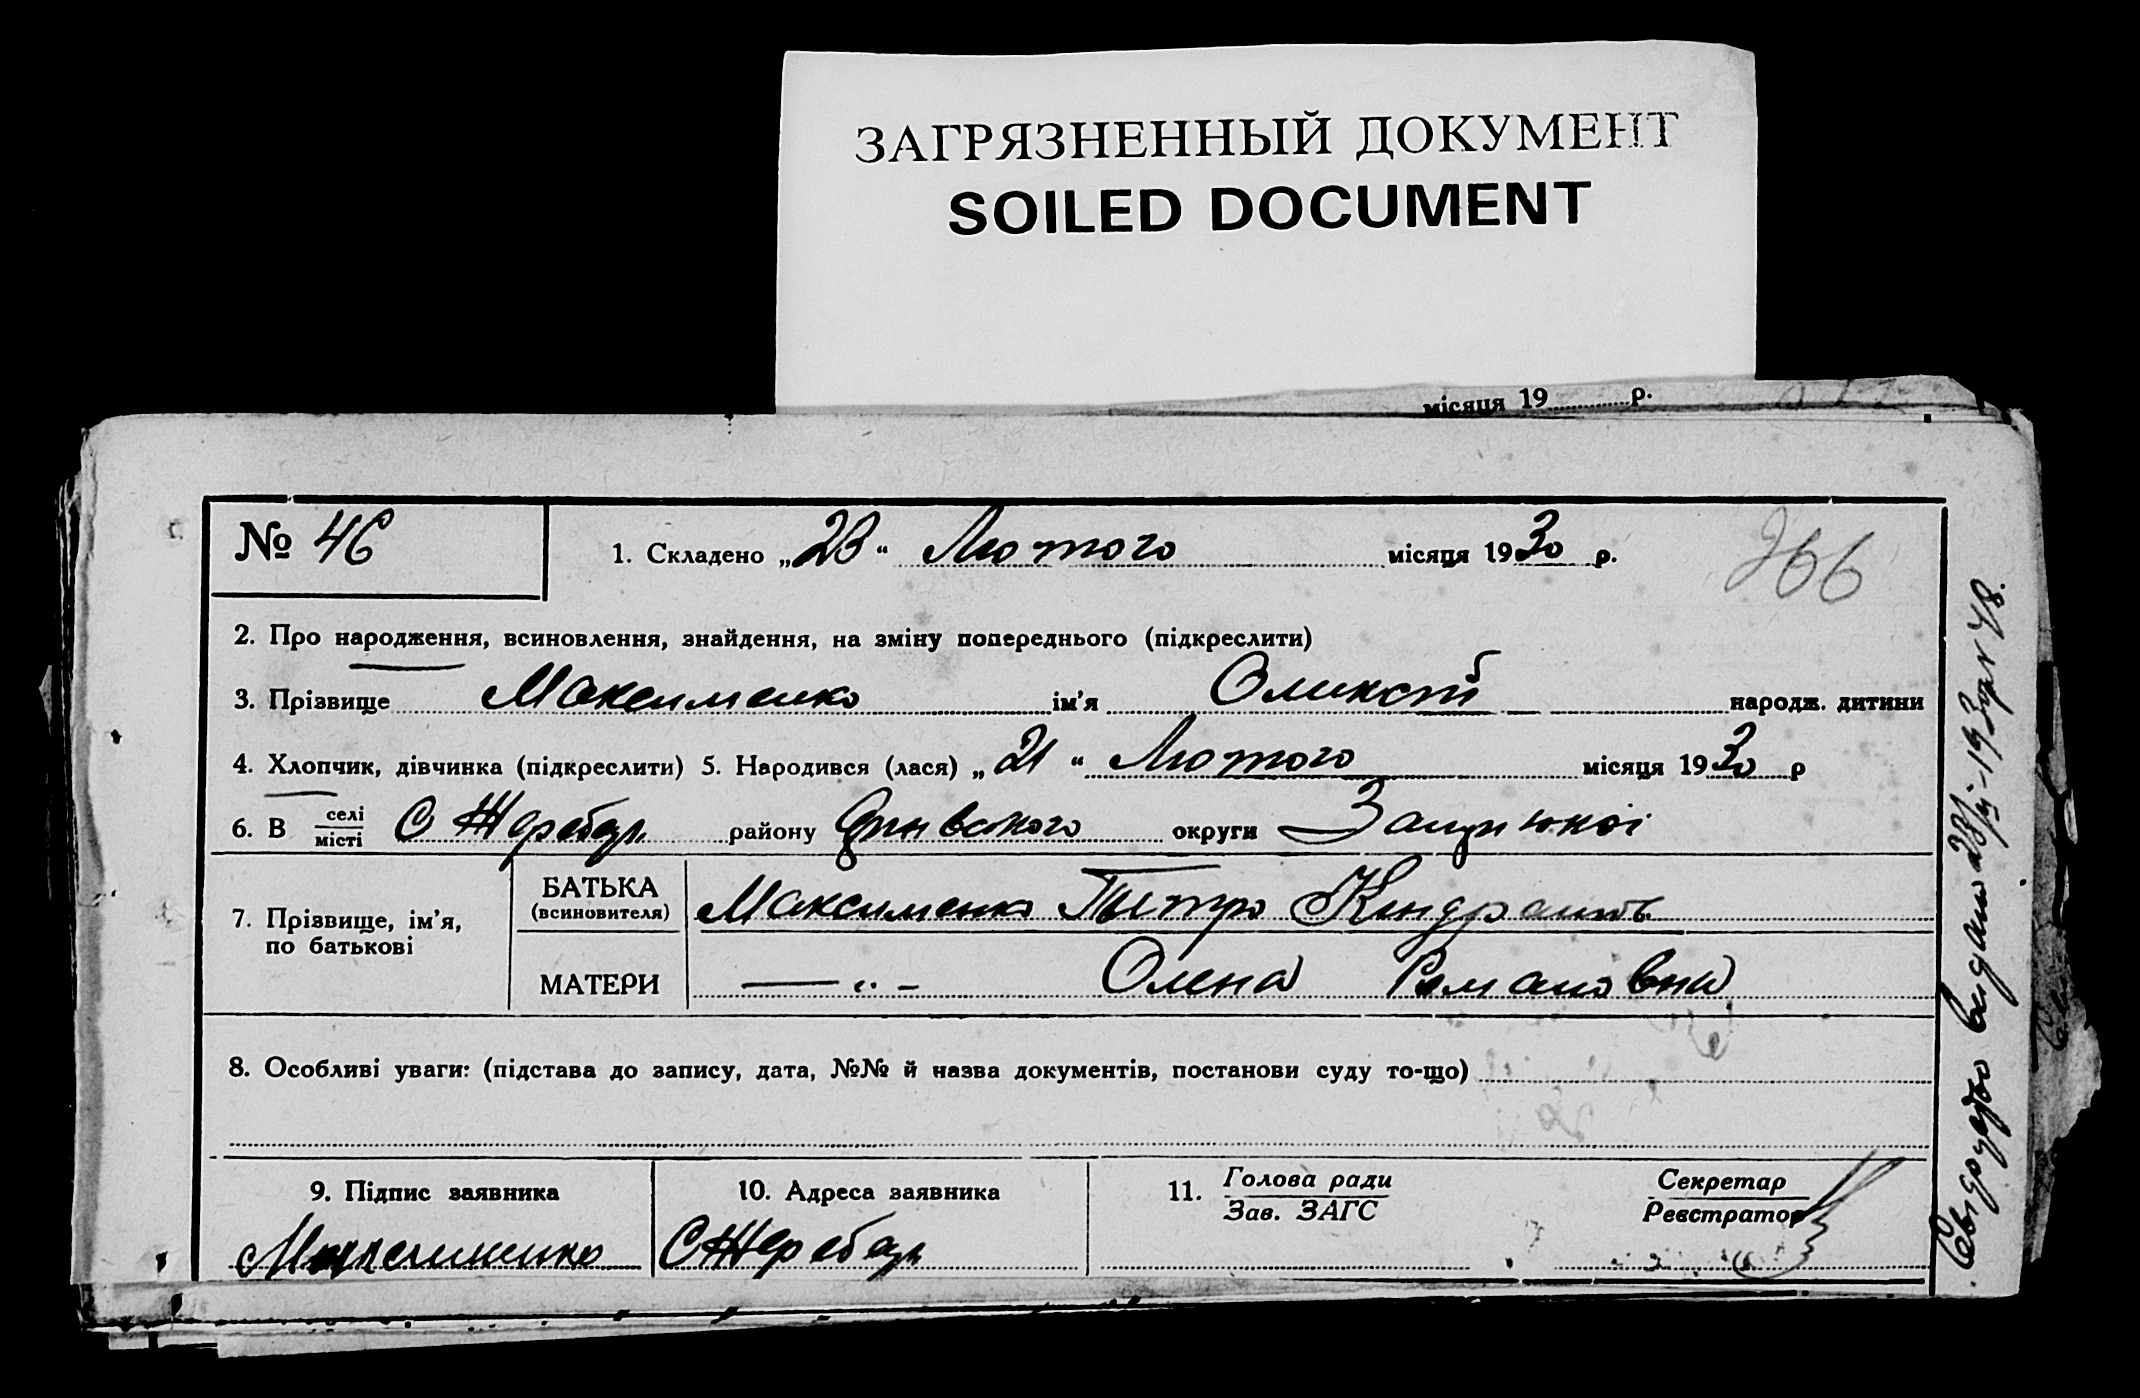 ЗАГРЯЗНЕННЫЙ ДОКУМЕНТ
SOILED DOCUMENT
місяця 19 р.
№ 46
1. Складено „23“ Лютого місяця 1930 р.
266
2. Про народження, всиновлення, знайдення, на зміну попереднього (підкреслити)
3. Прізвище Максименко ім'я народж. дитини
4. Хлопчик, дівчинка (підкреслити) 5. Народився (лася) „21“ Лютого місяця 1930 р
6. В селі місті С Жеребец району округи
7. Прізвище, ім'я, по батькові
БАТЬКА (всиновителя) Максименко Петро Кіндратов.
МАТЕРИ —"- Олена Романовна
8. Особливі уваги: (підстава до запису, дата, №№ й назва документів, постанови суду то-що)
9. Підпис заявника
Максименко
10. Адреса заявника
С Жеребец
11. Голова ради
Зав. ЗАГС
Секретар
Реєстратор
Свідоцтво видано